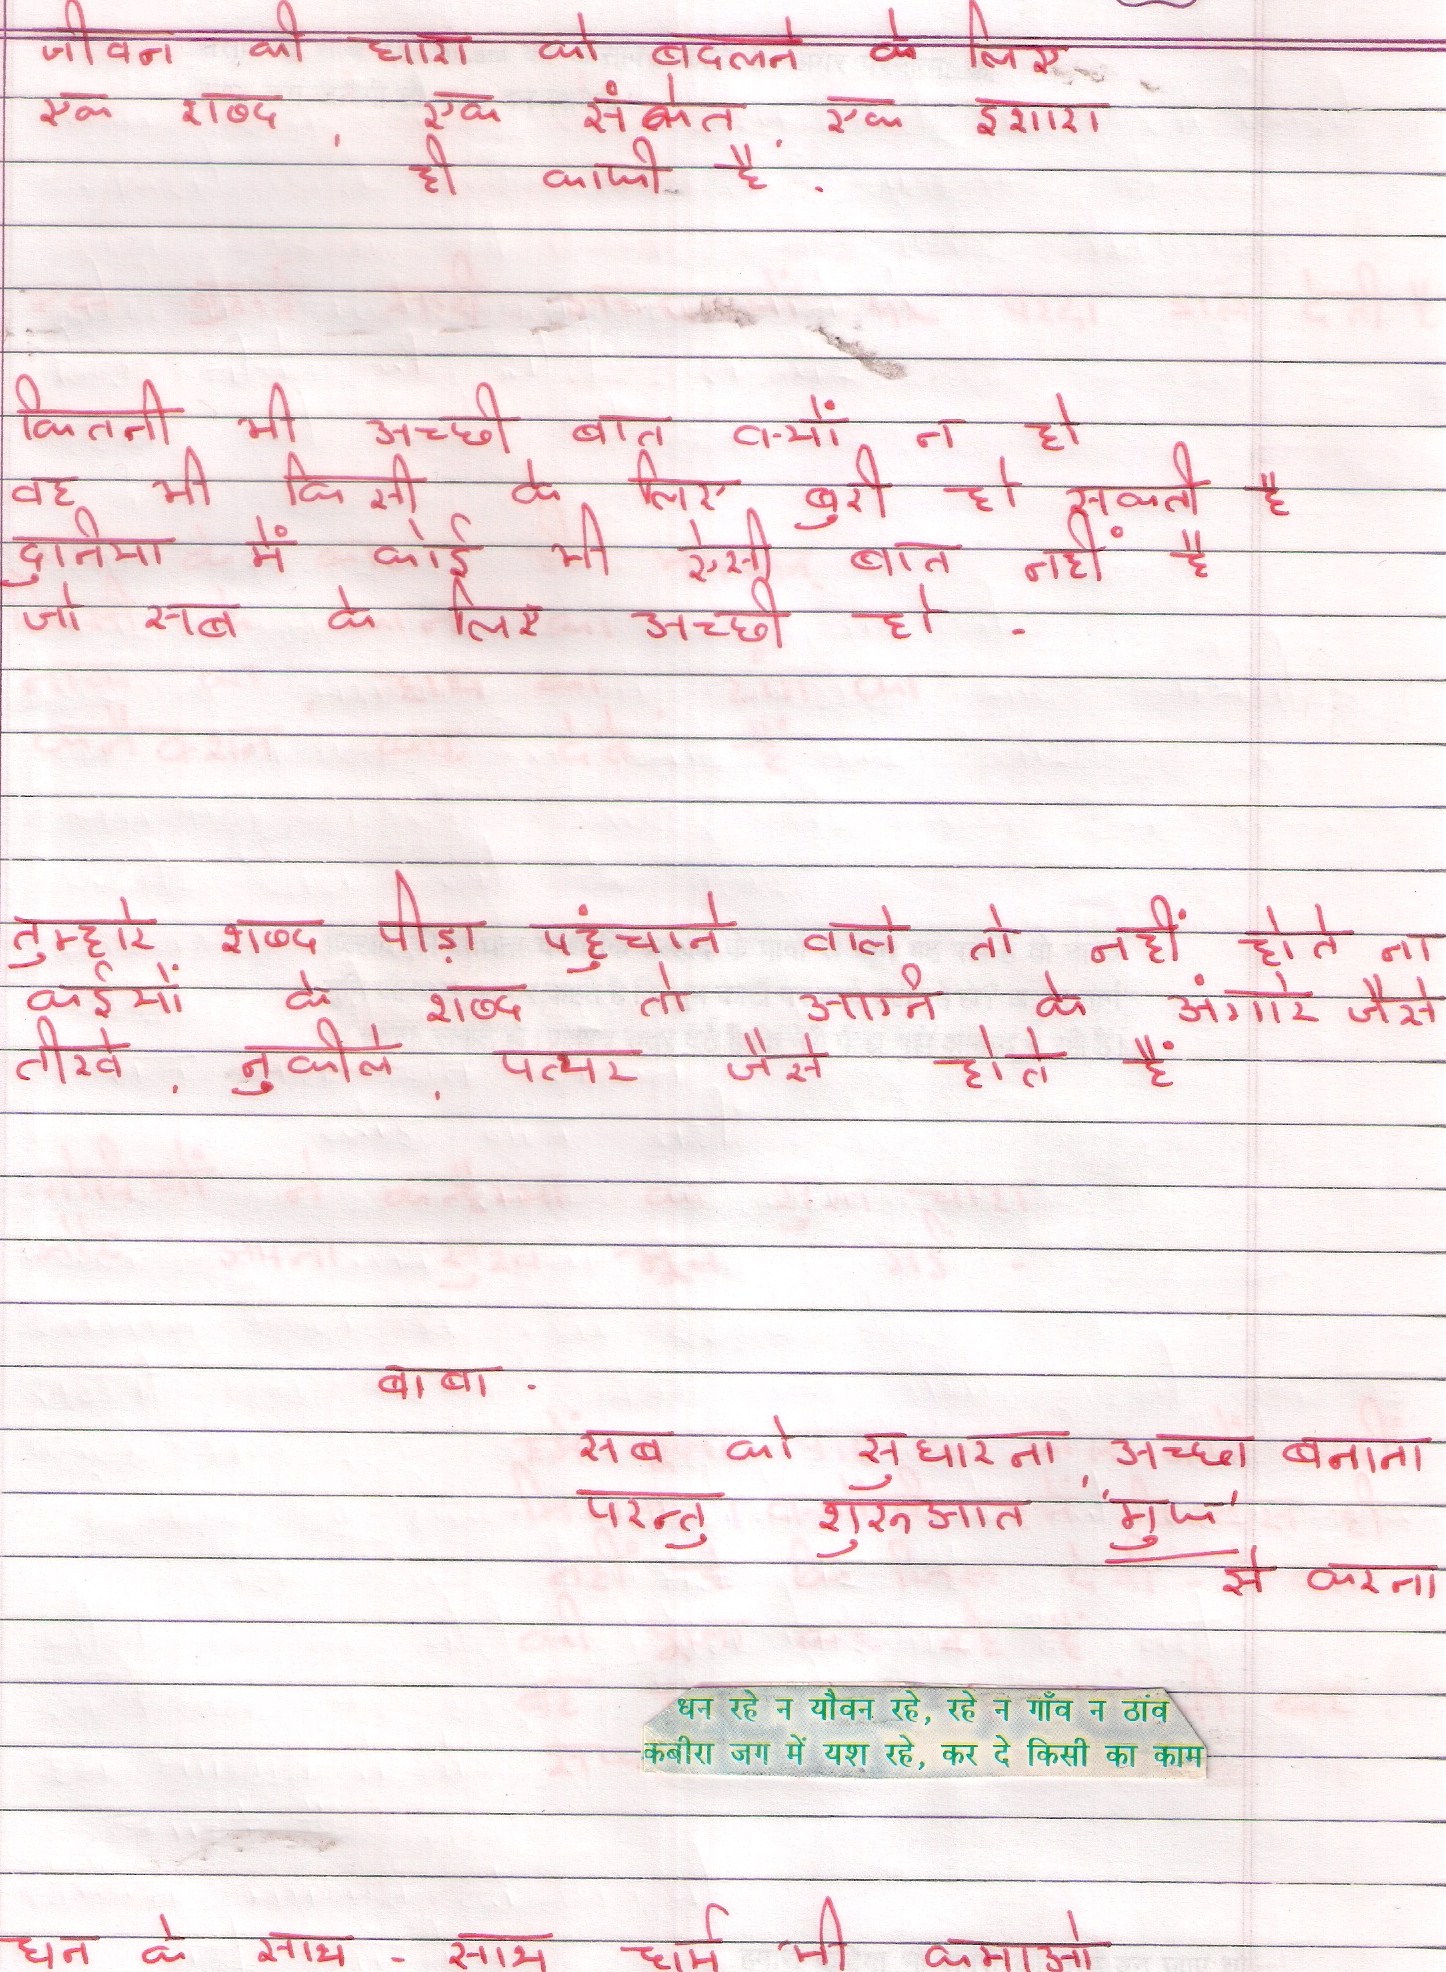 जीवन की धारा को बदलने के लिए
एक शब्द, एक संकेत, एक इशारा
ही काफी है.
कितनी भी अच्छी बात क्यों न हो
वह भी किसी के लिए बुरी हो सकती है
दुनिया में कोई भी ऐसी बात नहीं है
जो सब के लिए अच्छी हो.
तुम्हारे शब्द पीड़ा पहुंचाने वाले तो नहीं होते ना
कईयों के शब्द तो अग्नि के अंगारे जैसे
तीखे, नुकीले, पत्थर जैसे होते हैं
बाबा.
सब को सुधारना, अच्छा बनाना
परन्तु शुरुआत 'मुझ'
से करना
धन रहे न यौवन रहे, रहे न गाँव न ठांव
कबीरा जग में यश रहे, कर दे किसी का काम
धन के साथ - साथ धर्म भी कमाओ